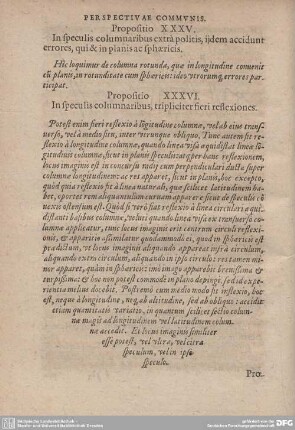 PERSPECTIVAE COMMVNIS.
Propositio XXXV.
In speculis columnaribus extrà politis, ijdem accidunt
errores, qui & in planis ac sphæricis.
Hic loquimur de columna rotunda, quæ in longitudine conuenit
cũ planis, in rotunditate cum sphæricis: ideo vtrorumq; errores par
ticipat.
Propositio XXXVI.
In speculis columnaribus, tripliciter fieri reflexiones.
Potest enim fieri reflexio à lõgitudine columnæ, vel ab eius trans-
uerso, vel à medio situ, inter vtrunque obliquo. Tunc autem fit re-
flexio à longitudine columnæ, quando linea visa æquidistat lineæ lõ
gitudinis columnæ, sicut in planis speculis
reflexionem,
locus imaginis est in concursu radij cum perpendiculari ducta super
columnæ longitudinem: ac res apparet, sicut in planis, hoc excepto,
quòd quia reflexio fit à linea naturali, quæ scilicet latitudinem
bet, oportet rem aliquantulum curuam apparere
uexo ostensum est. Quòd si verò fiat reflexio à circulis
distanti basibus columnæ, veluti quando linea visa ex transuerso co
lumnæ applicatur, tunc locus imaginis erit centrum circuli reflexi-
onis, & apparitio assimilatur quodammodo ei, quod in sphæricis est
prædictum, vt locus imaginis aliquando appareat infra circulum,
aliquando extra circulum, aliquando in ipso circulo: res tamen mi
nor apparet, quàm in sphæricis: imò imago apparebit breuissima &
&
: & hoc non potest commodè in plano depingi, sed ex expe-
rientia melius docebit. Postremò cum medio modo fit reflexio, hoc
est, neque à longitudine, neq; ab altitudine, sed ab obliquo: accidit
etiam quantitatis variatio, in quantum scilicet sectio colum-
næ magis ad longitudinem vel latitudinem colum-
næ accedit. Et locus imaginis similiter
esse potest, vel vltra, vel citra
speculum, vel in ipso
speculo.
Pro.